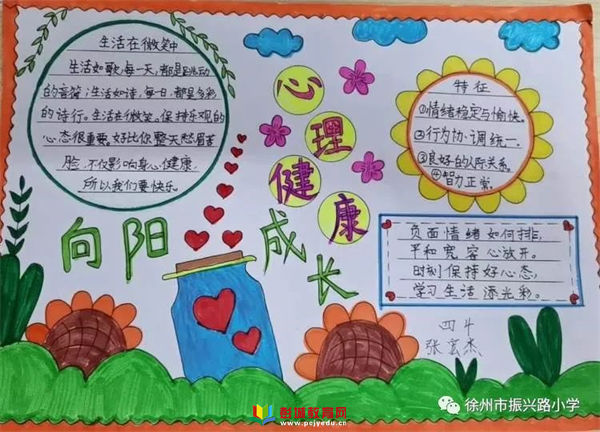 生活在微笑中
生活如歌,每一天,都是跳动
的音符;生活如诗,每一日,都是多彩
的诗行。生活在微笑。保持乐观的
心态很重要。好比你整天愁眉苦
脸,不仅影响身心健康,
所以我们要快乐。
心理健康
向阳成长
特征
①情绪稳定与愉快。
②行为协调统一。
③良好的人际关系。
④智力正常。
负面情绪如何排,
平和宽容心放开。
时刻保持好心态,
学习生活添光彩。
四4
张宏杰
彭城教育网
www.pcjyedu.cn
徐州市振兴路小学